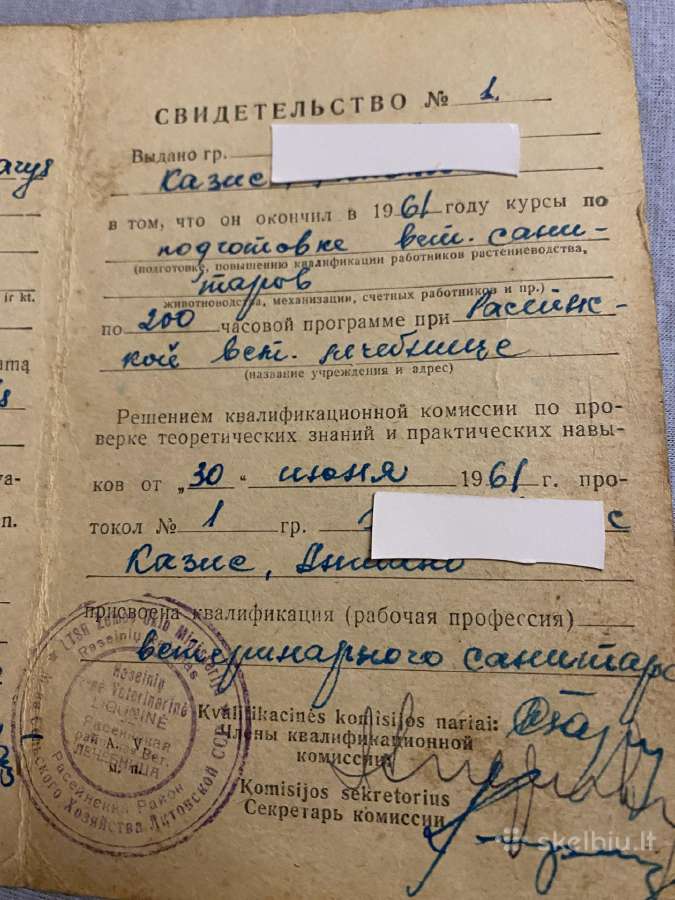 СВИДЕТЕЛЬСТВО № 1
Выдано гр.
Казис,
в том, что он окончил в 1961 году курсы по
подготовке вет. сани-
(подготовке, повышению квалификации работников растениеводства,
таров
животноводства, механизации, счетных работников и пр.)
по 200 часовой программе при Расейнс-
кой вет. лечебнице
(название учреждения и адрес)
Решением квалификационной комиссии по про-
верке теоретических знаний и практических навы-
ков от „30“ июня 1961 г. про-
токол № 1 гр. с
Казис,
присвоена квалификация (рабочая профессия)
ветеринарного санитара
Kvalifikacinės komisijos nariai:
Члены квалификационной
комиссии
Komisijos sekretorius
Секретарь комиссии
LTSR Žemės Ūkio Ministerija
Raseinių
Raseinių
Veterinarinė
LIGONINĖ
А. V.
Расейнская
рай. Вет.
ЛЕЧЕБНИЦА
м. п.
Расейнский Район
Сельского Хозяйства Литовской ССР
ir kt.
skelbiu.lt